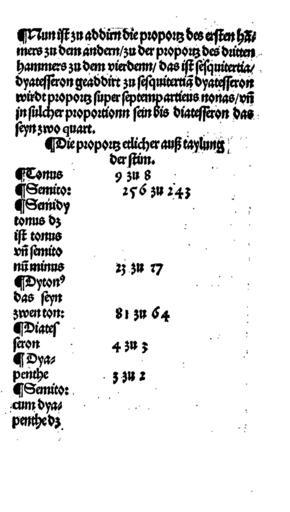 ¶Nun ist zu addirn die proportz des ersten hā-
mers zu dem andern/zu der proportz des dritten
hammers zu dem vierdem/ das ist sesquitertia/
dyatesseron geaddirt zu sesquitertiā dyatesseron
wirdt proportz super septempartiens nonas/vn̄
jn sulcher proportionn sein bis diatesseron das
seyn zwo quart.
¶Die proportz etlicher auß taylung
der stim.
¶Tonus 9 zu 8
¶Semito: 256 zu 243
¶Semidy
tonus dz
ist tonus
vn̄ semito
nū minus 23 zu 27
¶Dyton⁹
das seyn
zwen ton: 81 zu 64
¶Diates
seron 4 zu 3
¶Dya-
penthe 3 zu 2
¶Semito:
cum dya-
penthe dz